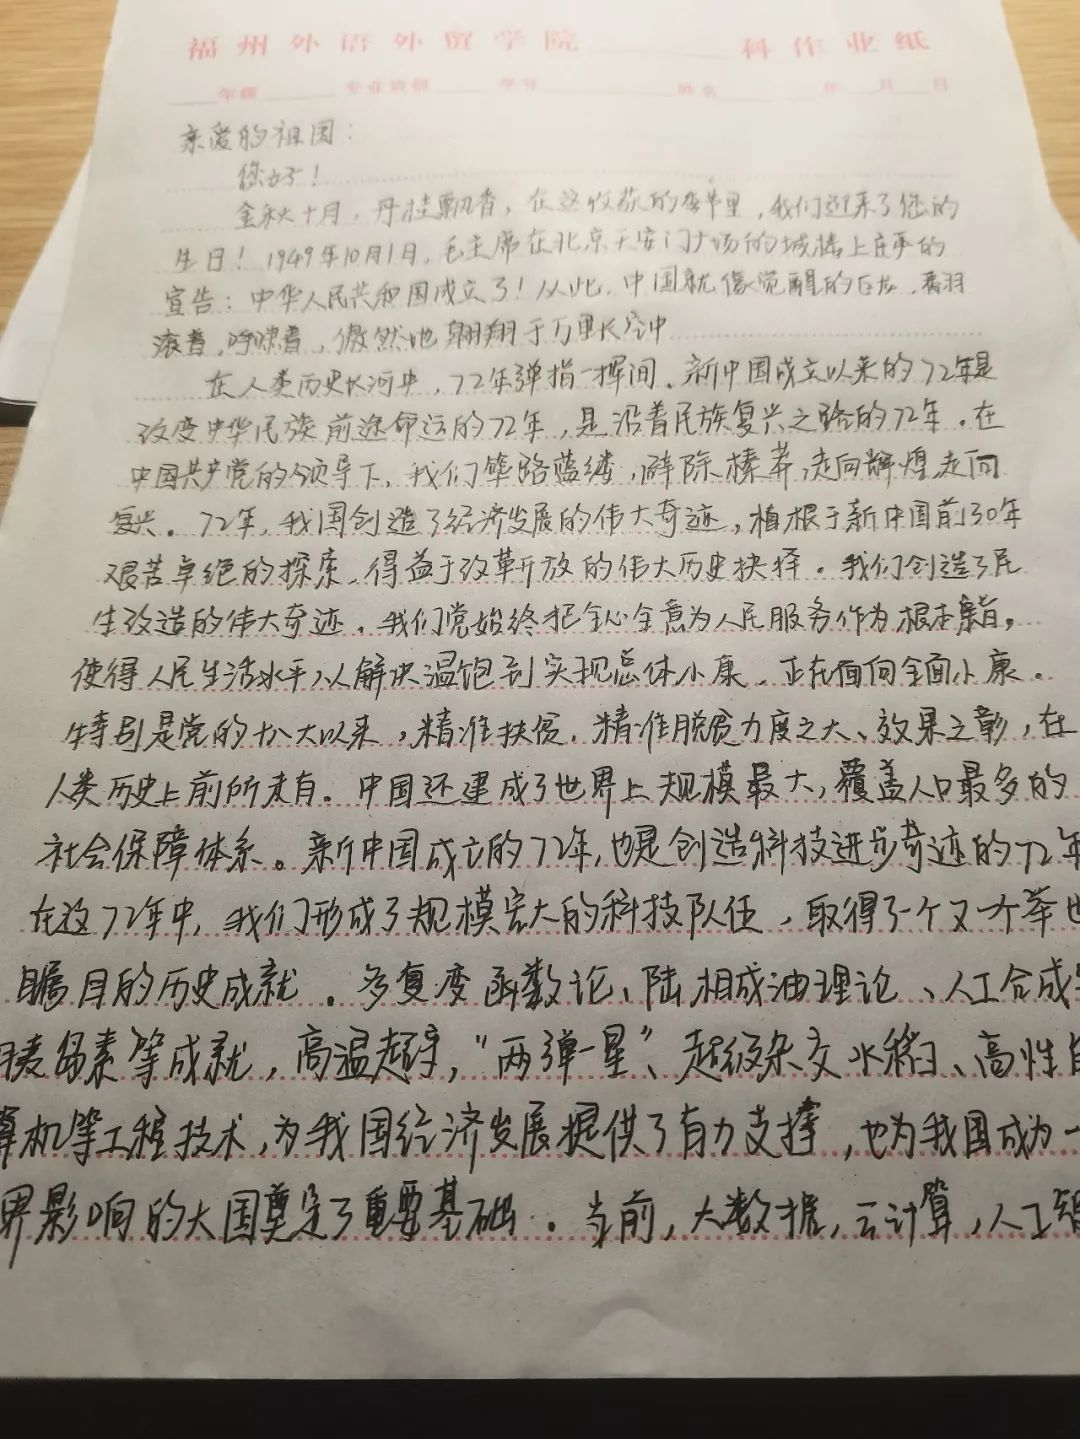 福州外语外贸学院 科作业纸
年级 专业班级 学号 姓名 年 月 日
亲爱的祖国：
您好！
金秋十月，丹桂飘香，在这收获的季节里，我们迎来了您的
生日！1949年10月1日，毛主席在北京天安门广场的城楼上庄严的
宣告：中华人民共和国成立了！从此，中国就像觉醒的巨龙，
滚着，呼啸着，傲然地翱翔于万里长空中
在人类历史长河中，72年弹指一挥间，新中国成立以来的72年是
改变中华民族前途命运的72年，是沿着民族复兴之路的72年。在
中国共产党的领导下，我们筚路蓝缕，辟除榛莽，走向辉煌走向
复兴。72年，我国创造了经济发展的伟大奇迹，植根于新中国前30年
艰苦卓绝的探索，得益于改革开放的伟大历史抉择。我们创造了民
生改造的伟大奇迹，我们党始终把全心全意为人民服务作为根本宗旨，
使得人民生活水平从解决温饱到实现总体小康，正在面向全面小康。
特别是党的十八大以来，精准扶贫，精准脱贫力度之大、效果之彰，在
人类历史上前所未有。中国还建成了世界上规模最大，覆盖人口最多的
社会保障体系。新中国成立的72年，也是创造科技进步奇迹的72年
在这72年中，我们形成了规模宏大的科技队伍，取得了一个又一个举世
瞩目的历史成就。多复变函数论、陆相成油理论、人工合成
胰岛素等成就，高温超导，“两弹一星”、超级杂交水稻、高性
算机等工程技术，为我国经济发展提供了有力支撑，也为我国成为一
界影响的大国奠定了重要基础。当前，大数据，云计算，人工